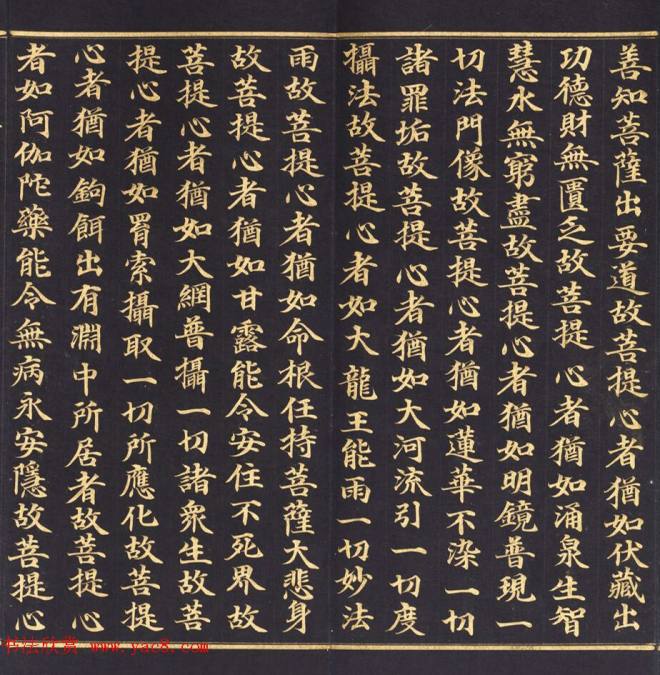 善知菩薩出要道故菩提心者猶如伏藏出
功德財無匱乏故菩提心者猶如涌泉生智
慧水無窮盡故菩提心者猶如明鏡普現一
切法門像故菩提心者猶如蓮華不染一切
諸罪垢故菩提心者猶如大河流引一切度
攝法故菩提心者如大龍王能雨一切妙法
雨故菩提心者猶如命根任持菩薩大悲身
故菩提心者猶如甘露能令安住不死界故
菩提心者猶如大網普攝一切諸衆生故菩
提心者猶如罥索攝取一切所應化故菩提
心者猶如鉤餌出有淵中所居者故菩提心
者如阿伽陀藥能令無病永安隱故菩提心
书法欣赏 www.yac8.com